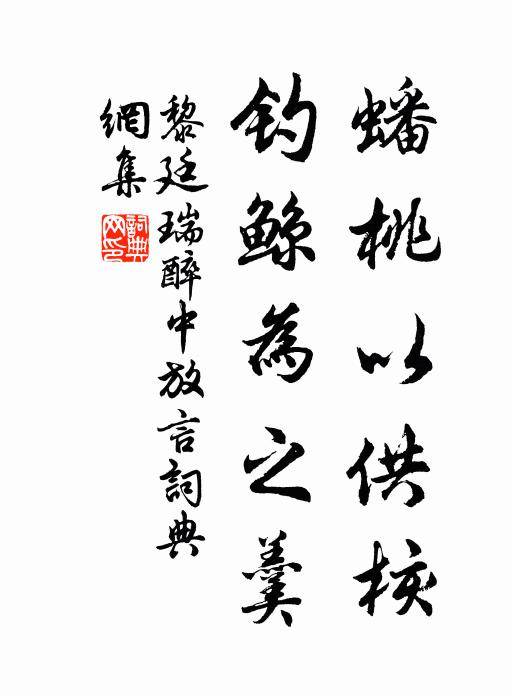 蟠桃以供核
釣鯨為之羹
黎廷瑞醉中放言詞典
網集
詞典網印